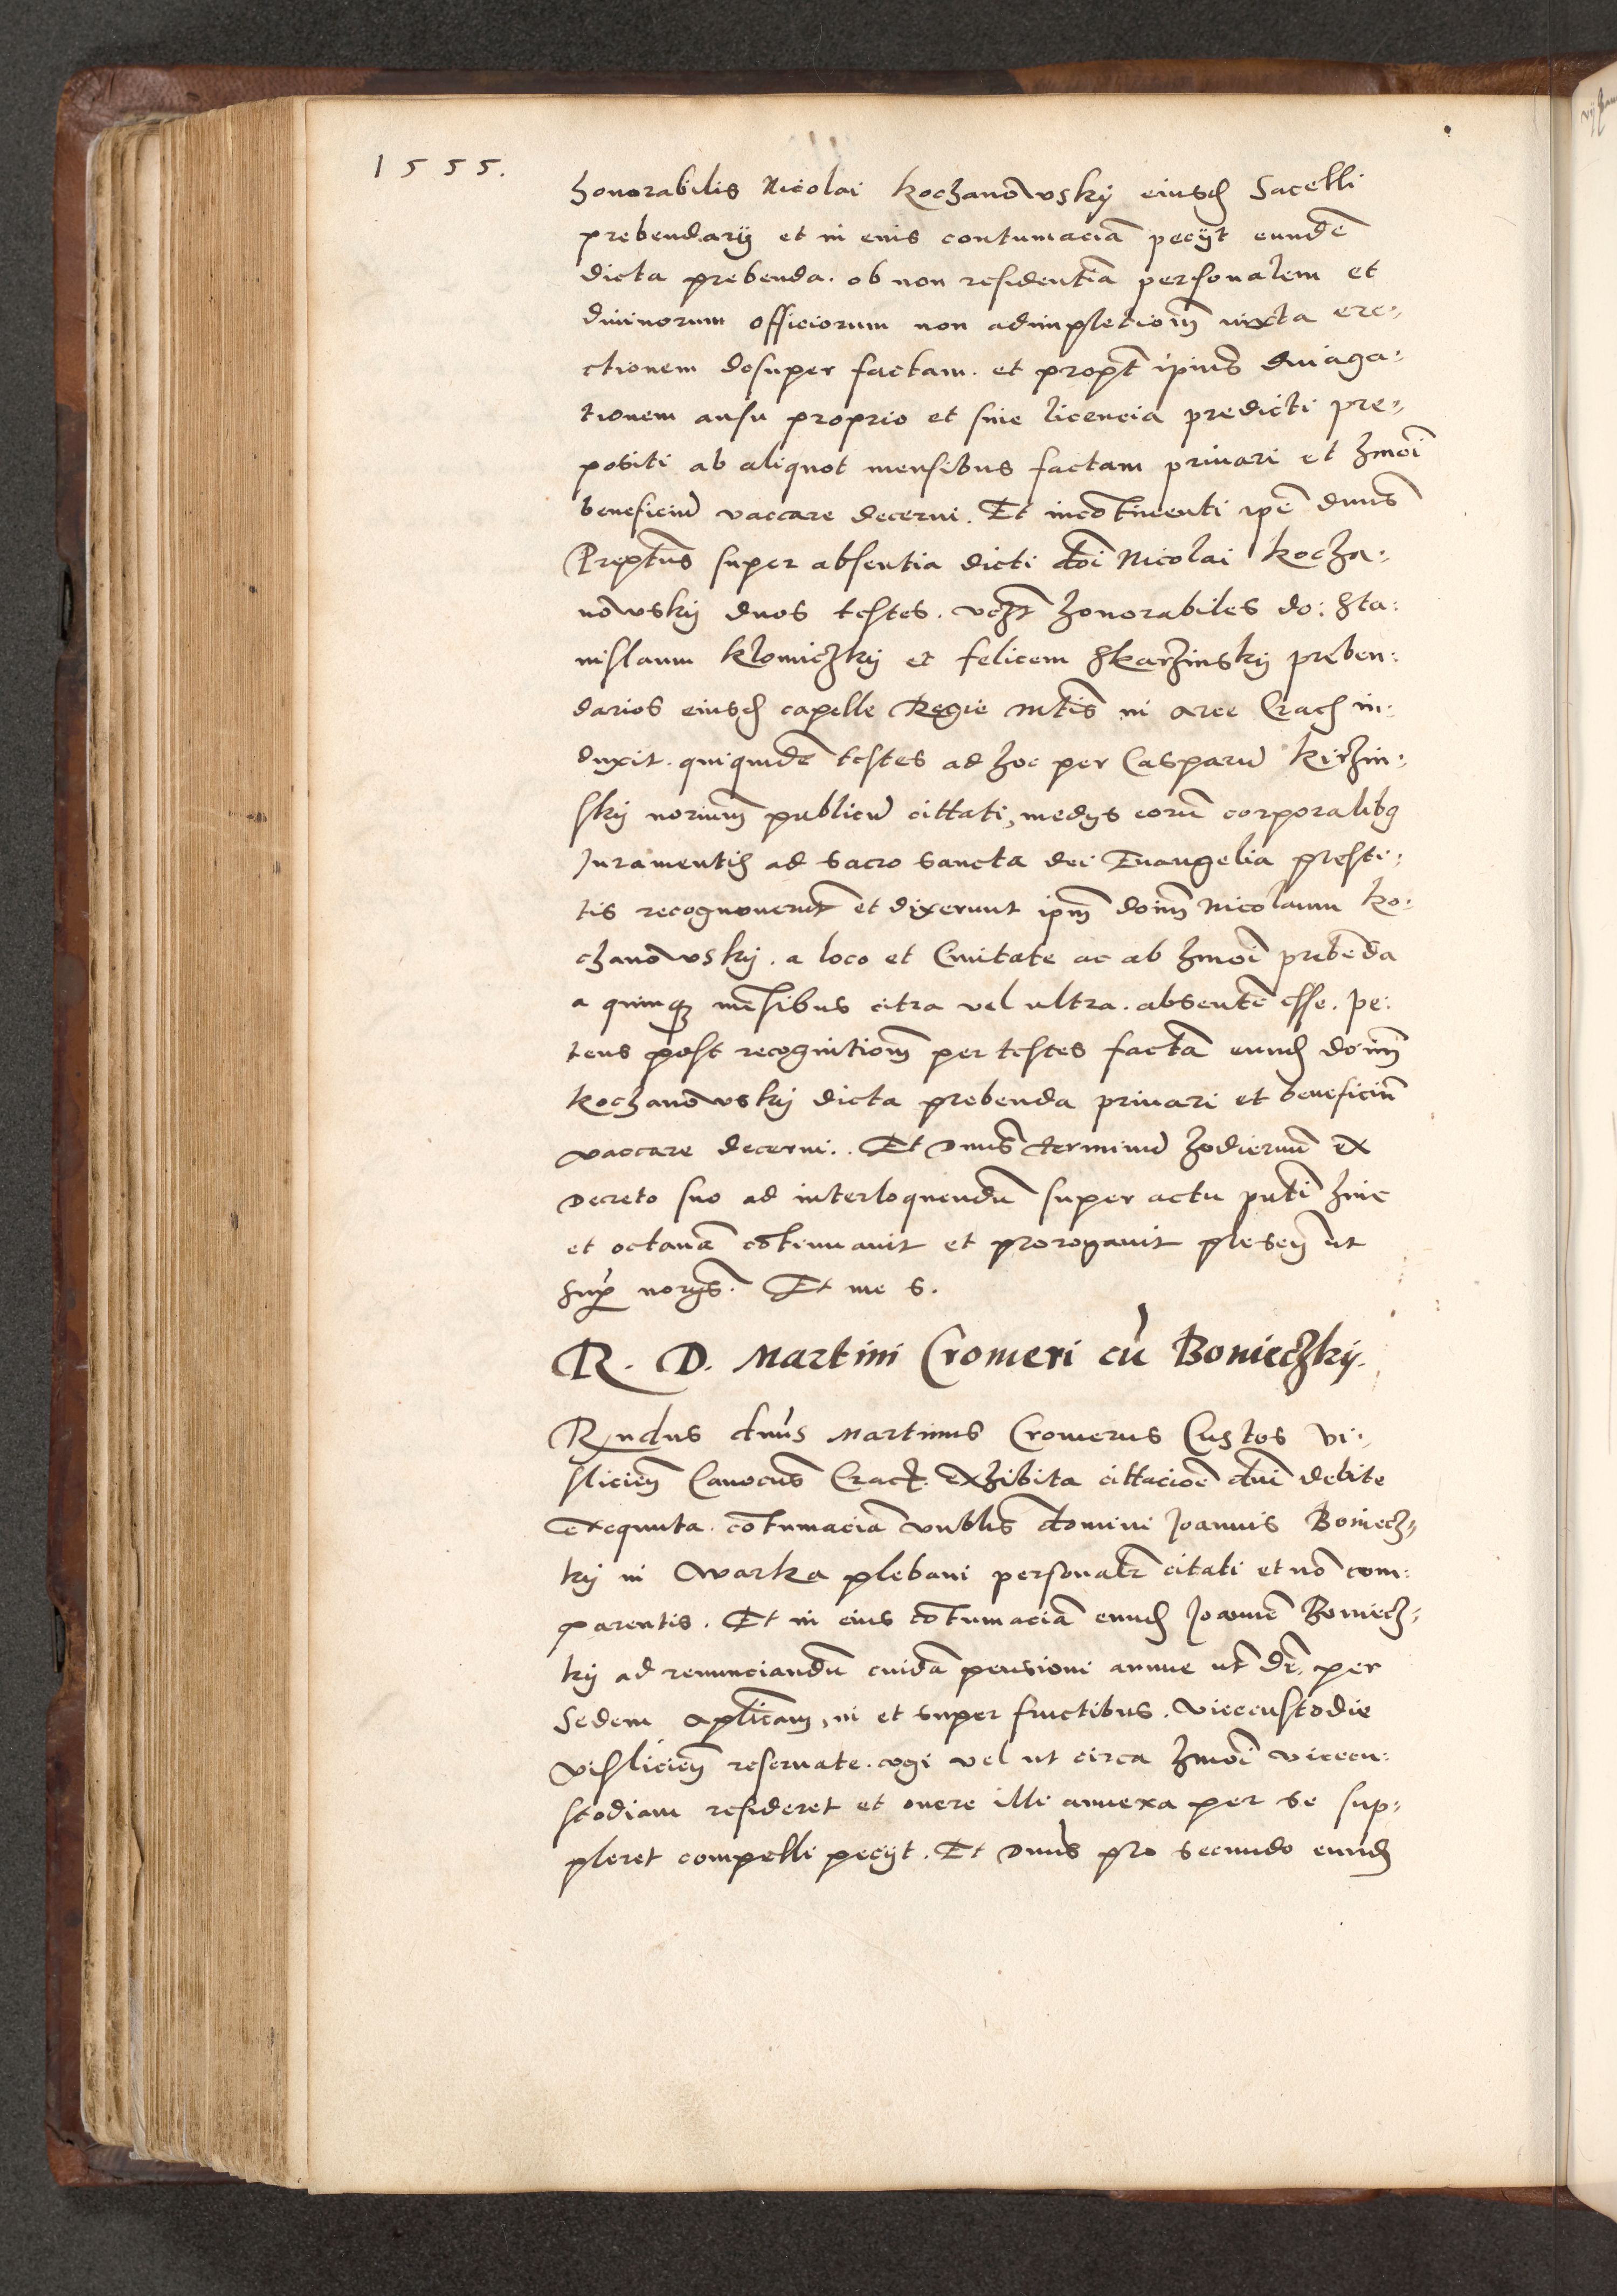 1555.
honorabilis Nicolai Koczanowskÿ eiusd Sacelli
prebendarÿ et in eius contumaciã pecÿt eundẽ
dicta prebenda. ob non residentiã personalem et
diuinorum officiorum non adimpletionẽ iuxta ere=
ctionem desuper factam. et propt ipius diuaga=
tionem ausu proprio et sine licencia predicti pre=
positi ab aliquot mensibus factam priuari et hmõi
beneficiũ vaccare decerni. Et incõtinenti ipẽ dnus
Preptus super absentia dicti doi Nicolai Kocza=
nowskÿ duos testes. vczt honorabiles do: Sta:
nislaum Klomiczkÿ et felicem Skarzinskÿ preben:
darios eiusd capelle Regie mtis in arce Crac in:
duxit. quiquidẽ testes ad hoc per Casparũ Kirzin=
skÿ noriũm publicũ cittati, medÿs eorũ corporalibq
Juramentis ad sacro sancta dei Euangelia presti=
tis recognouerũt et dixerunt ipm doim Nicolaum Ko=
czanowskÿ. a loco et Ciuitate ac ab hmõi prebẽda
a quinqz mẽsibus citra vel ultra. absentẽ esse. pe:
tens post recognitionẽ per testes factã eund doim
Koczanowskÿ dicta prebenda priuari et beneficiũ
vaccare decerni.. Et Dnus terminũ hodiernũ ex
Decreto suo ad interloquendũ super actu pnti hinc
et octauã cõtinuauit et prorogauit ut
sup Et me s.
R. D. Martini Cromeri cũ Bonieczkÿ.
Rndus dnus Martinus Cromerus Custos Vi=
slicieñ Canocus Crac. exhibita cittacioẽ dni debite
exequuta. cõtumaciã vnblis domini Joannis Boniecz=
kÿ in Warka plebani personalr citati et nõ com:
parentis. Et in eius cõtumaciã eund Joannẽ Boniecz=
kÿ ad renunciandũ cuidã pensioni annue ut dr, per
Sedem aplicam, in et super fructibus. Vicecustodie
Visliciẽn reseruate. cogi vel ut circa hmõi vicecu=
stodiam resideret et onere illi annexa per se sup=
pleret compelli pecÿt. Et Dnus pro secundo eund